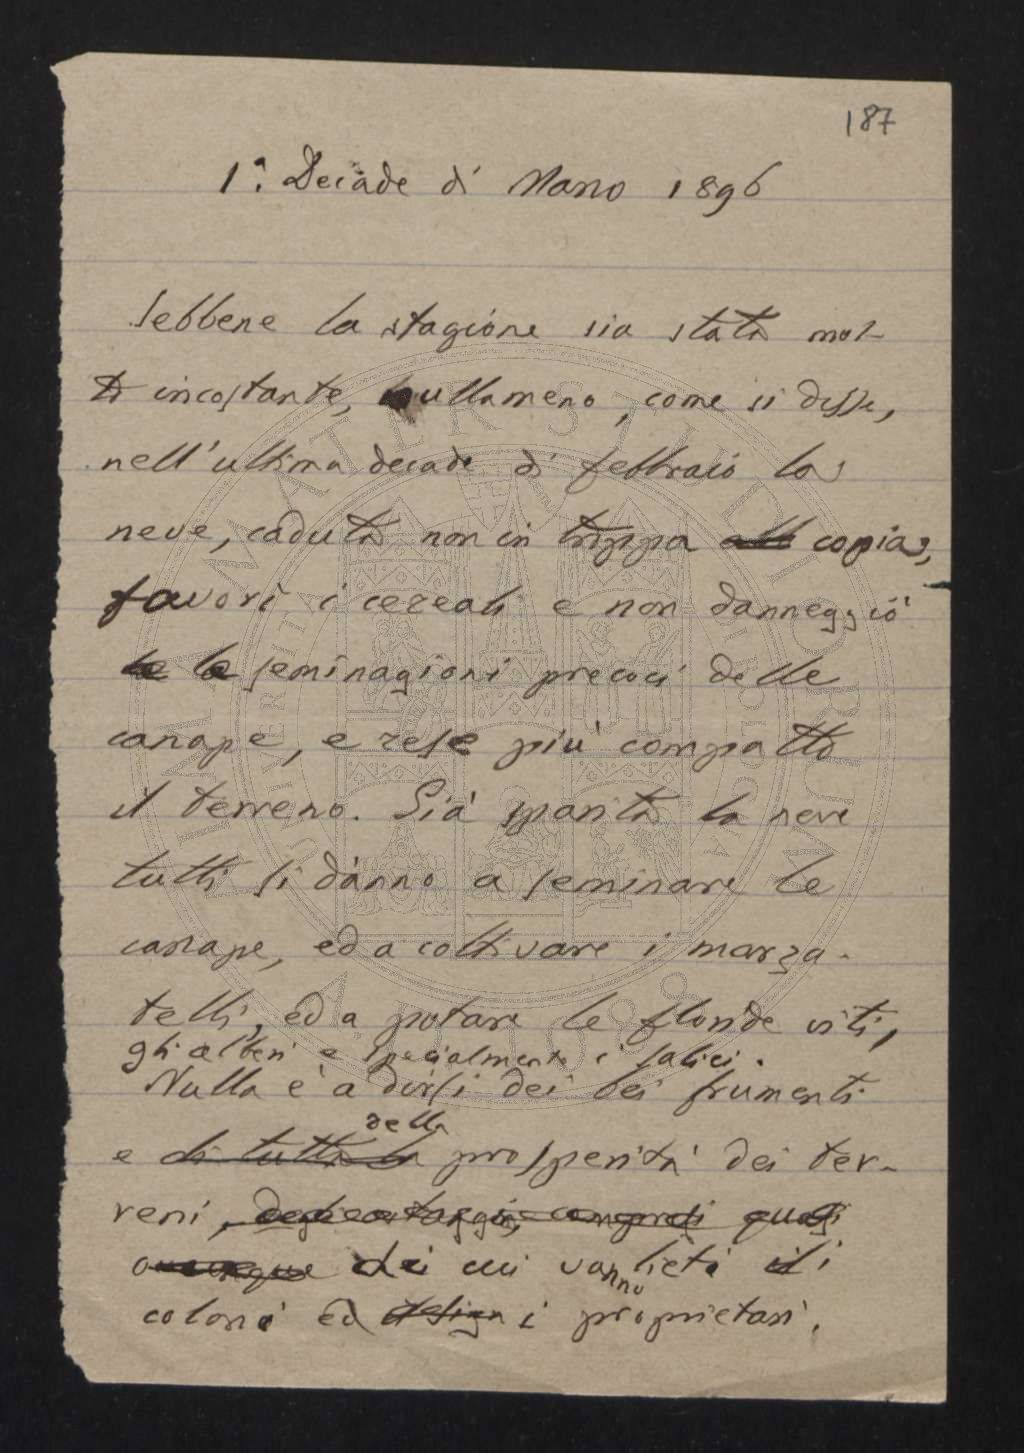 187
1ª. Decade di Marzo 1896
Sebbene la stagione sia stata mol-
to incostante, nullameno, come si disse,
nell'ultima decade di febbraio la
neve, caduta non in troppa copia,
favorì i cereali e non danneggiò
le le seminagioni precoci delle
canape, e rese più compatto
il terreno. Già sparita la neve
tutti si dànno a seminare le
canape, ed a coltivare i marza-
telli, ed a potare le floride viti,
gli alberi e specialmente i salici.
Nulla è a dirsi dei bei frumenti
della
e di tutta la prosperità dei ter-
reni, quasi
ovunque dei cui vanno lieti i
coloni ed i proprietari.
ALMA MATER STUDIORUM
A.D. 1088